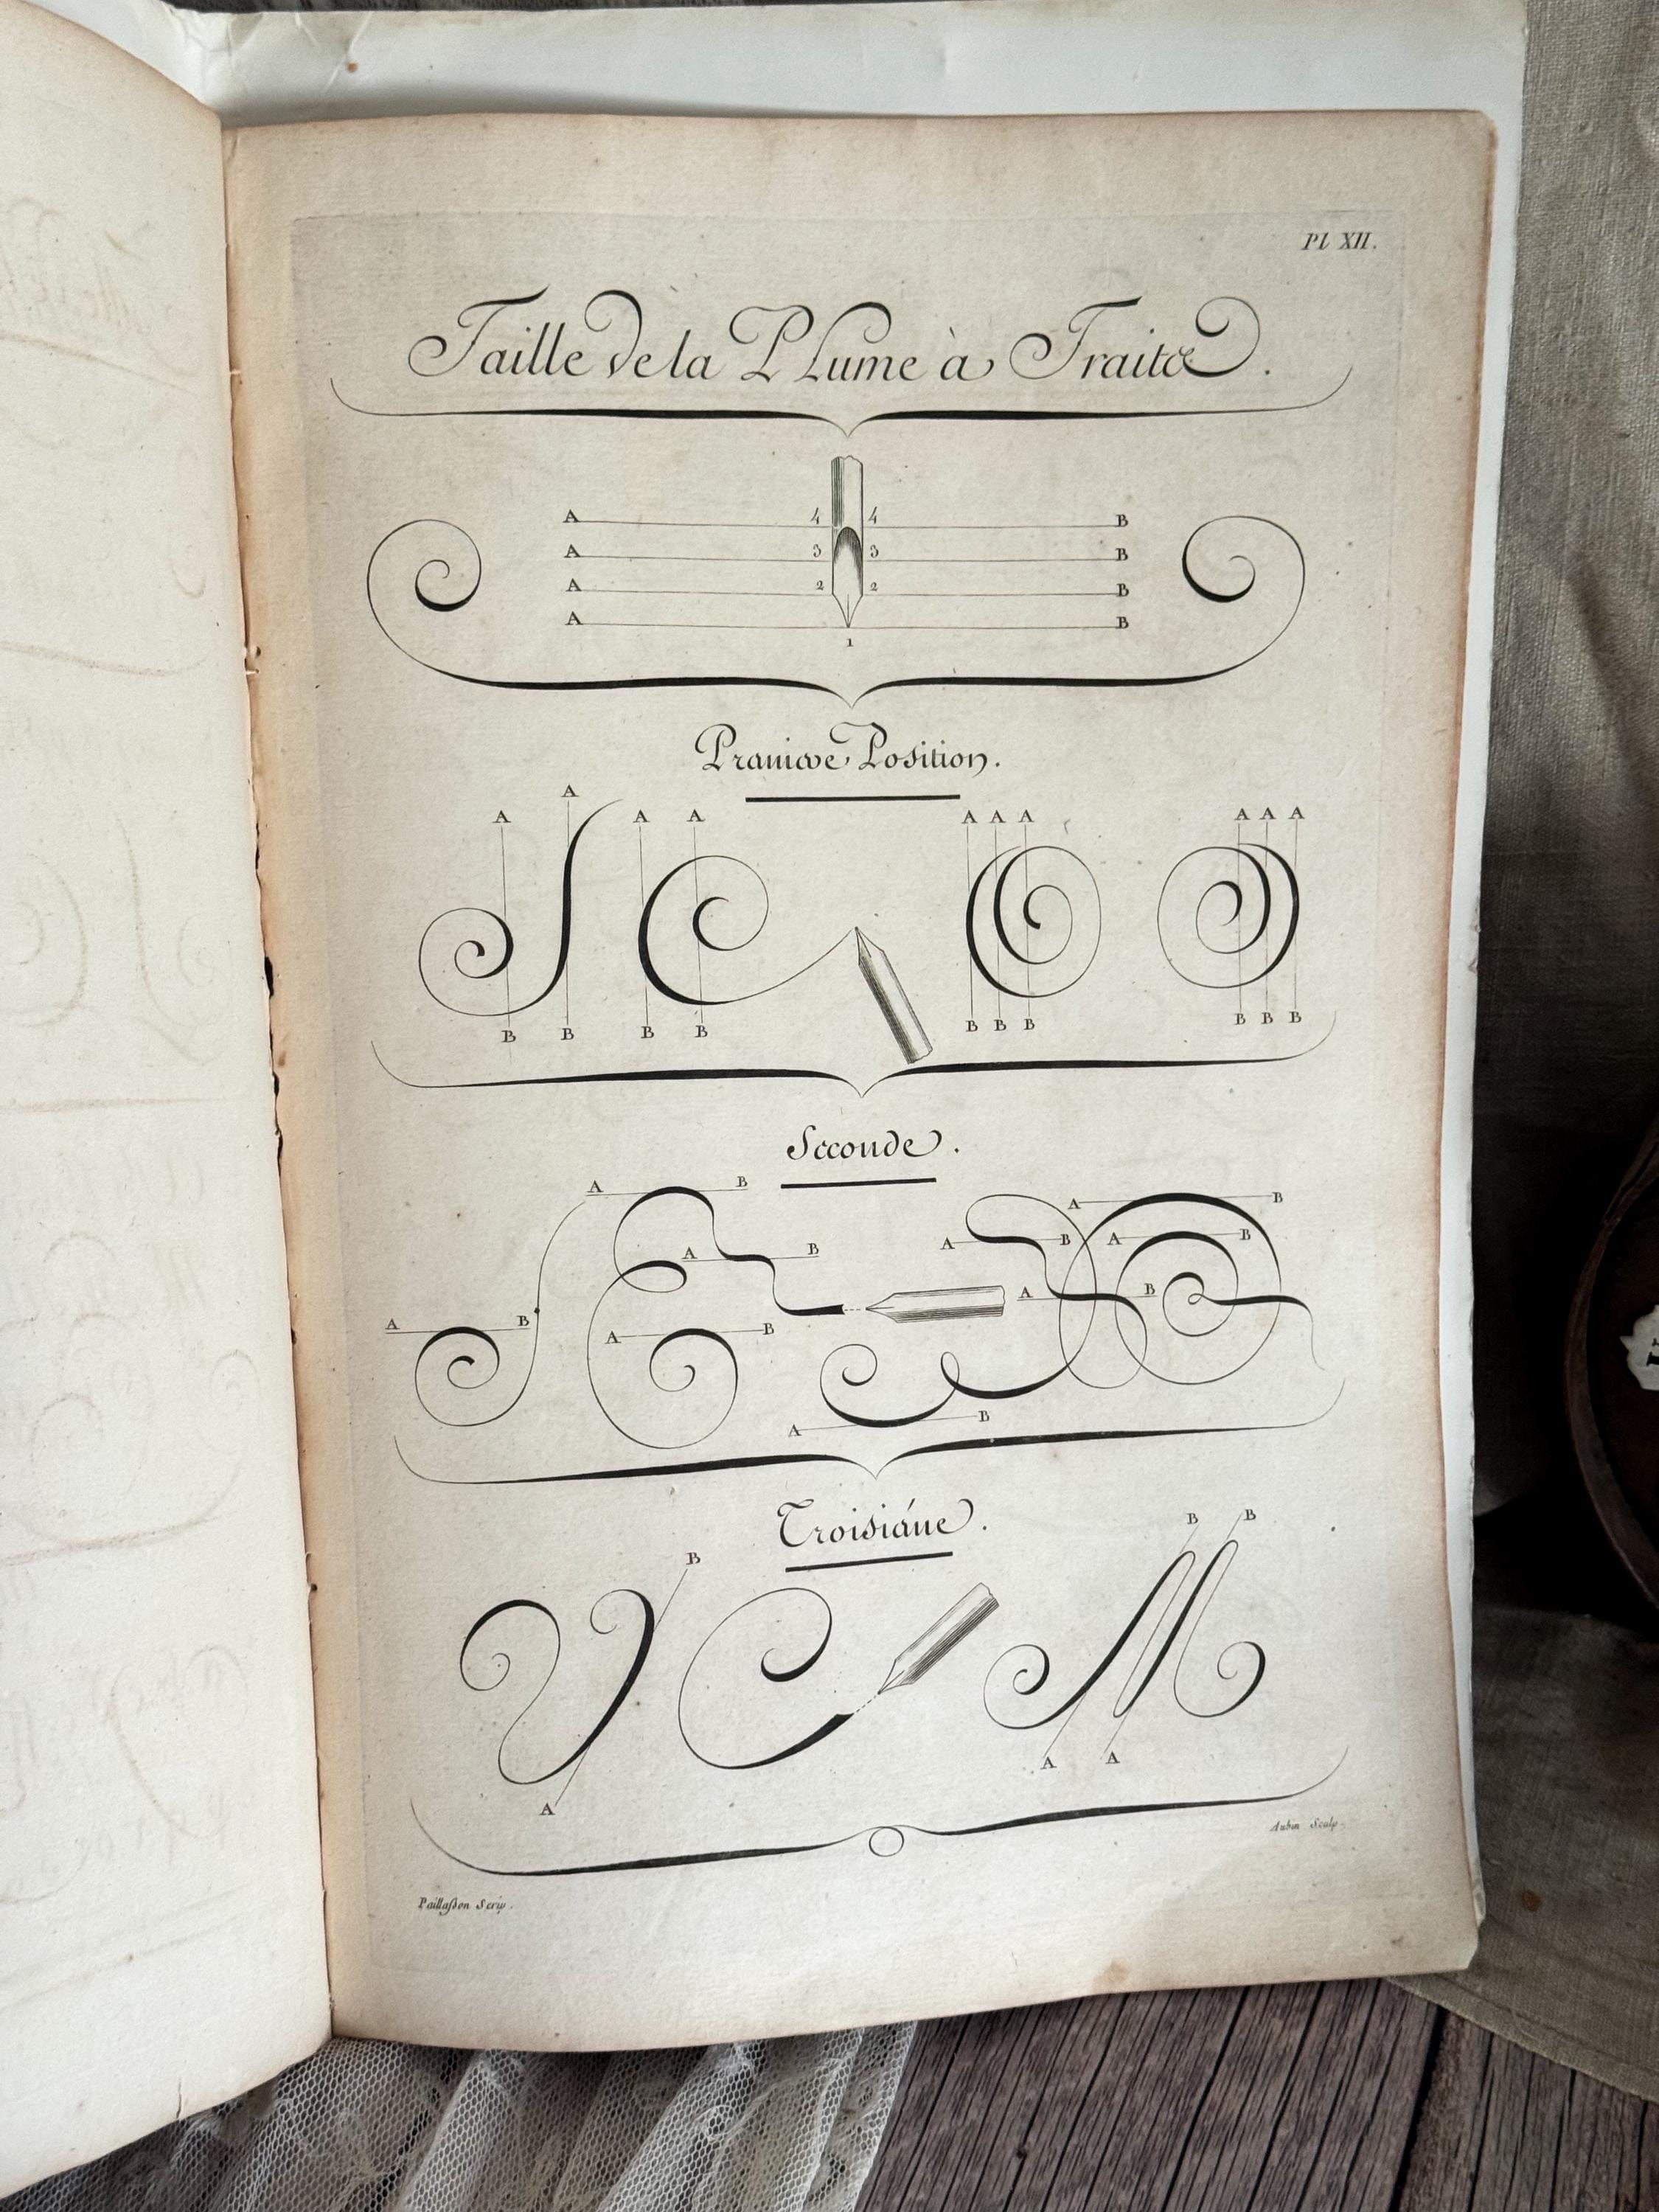 Pl XII.
Taille de la Plume à Traits.
A 4 4 B
A 3 3 B
A 2 2 B
A B
1
Premiere Position.
A A A A A A A A A A
B B B B B B B B B B
Seconde.
A B A B
A B A B A B
A B A B
A B A B
A B
Troisiéme.
B B B
A A A
Aubin Sculp.
Paillasson Scrip.